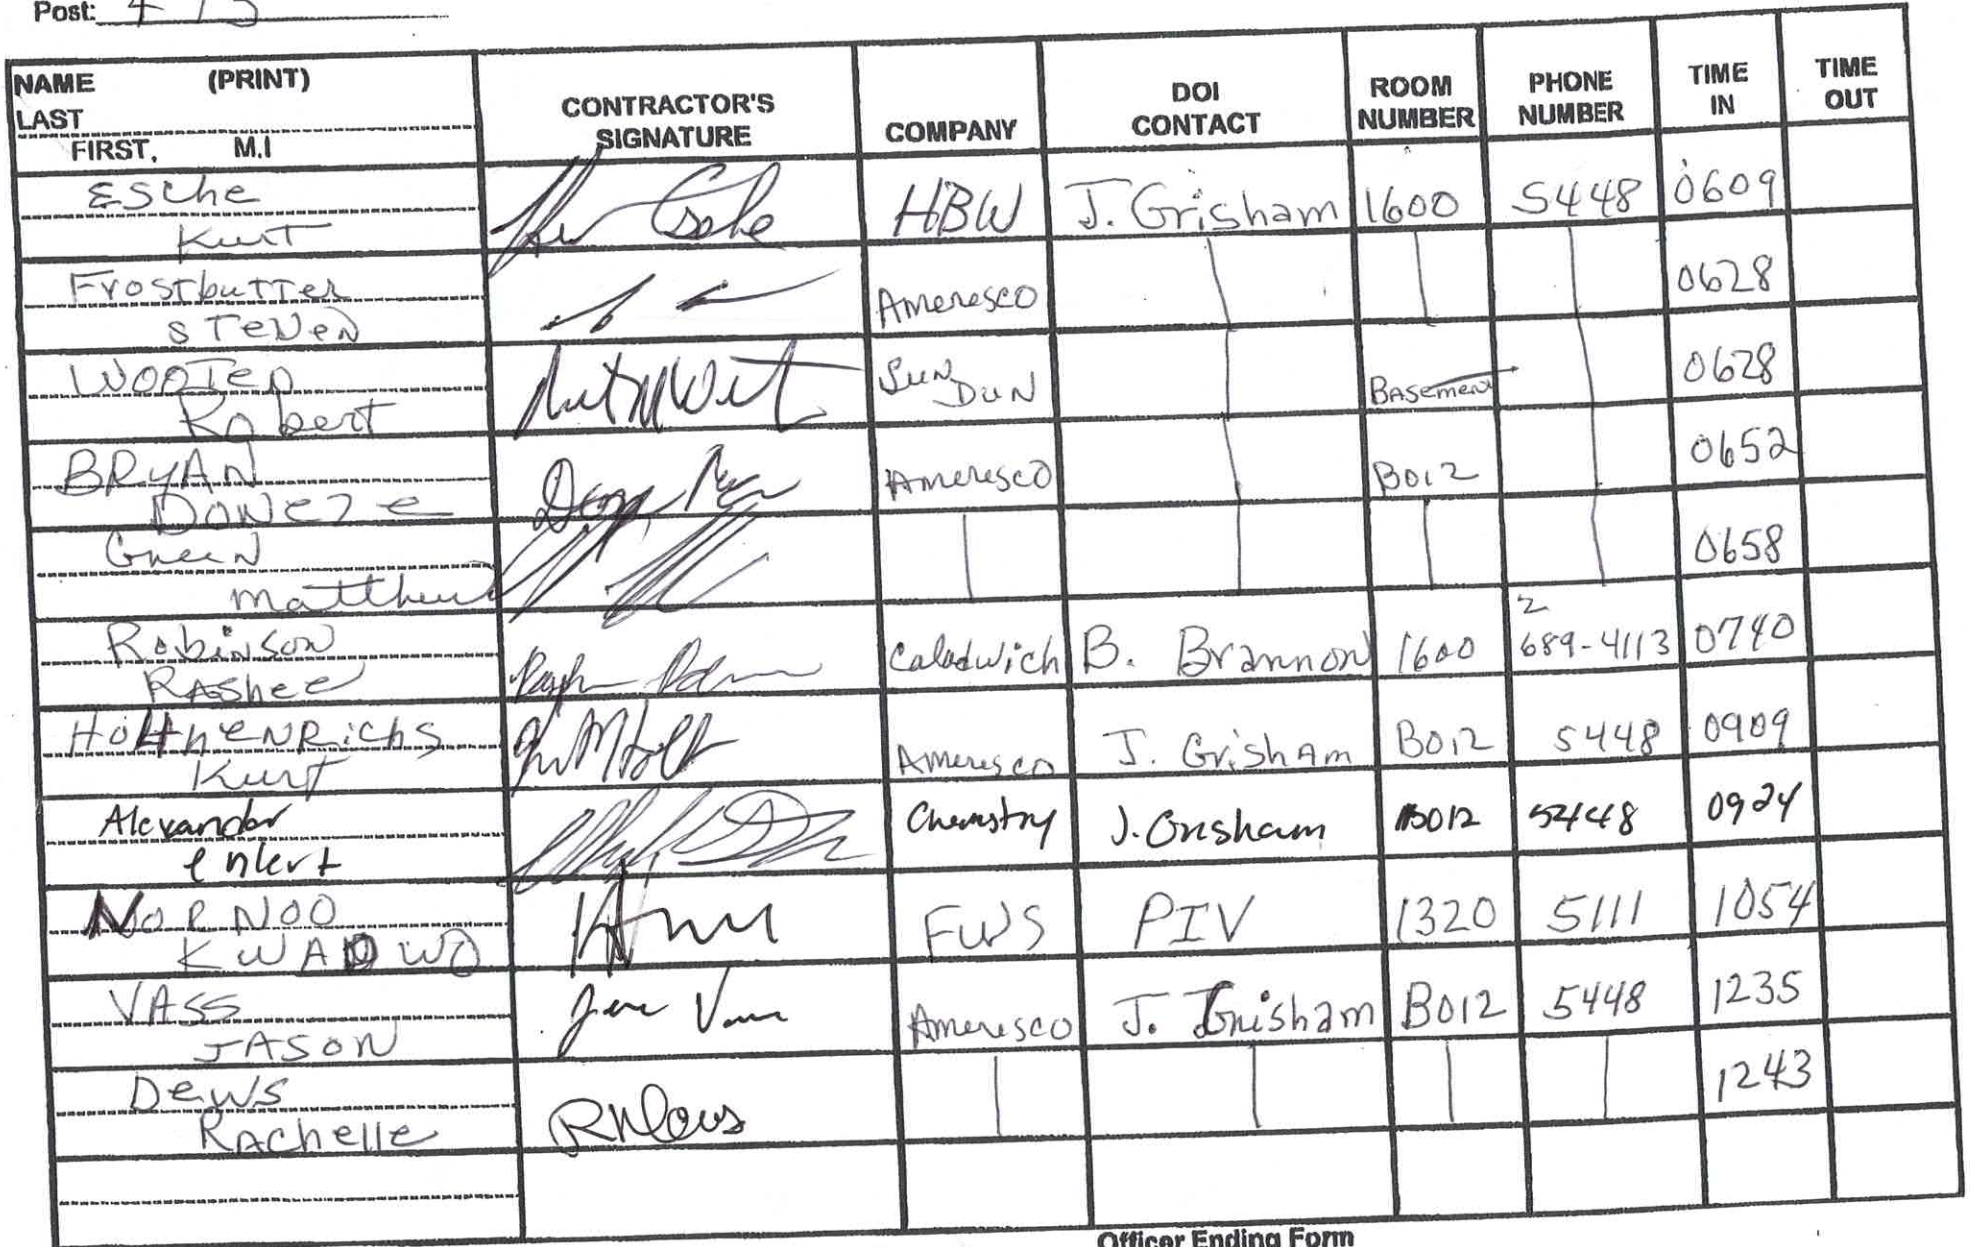 Post: 4 13
NAME (PRINT)
LAST
FIRST, M.I
CONTRACTOR'S
SIGNATURE
COMPANY
DOI
CONTACT
ROOM
NUMBER
PHONE
NUMBER
TIME
IN
TIME
OUT
Esche
Kurt
HBW J. Grisham 1600 5448 0609
Frostbutter
STeven
Ameresco 0628
WOOTen
Robert
Sun
Dun
Basement 0628
BRYAN
Ameresco B012 0652
Green
Matthew
0658
Robinson
RAShee
Caladwich B. Brannon 1600 2
689-4113 0740
HOLthENRichs
Kurt
Ameresco J. Grisham B012 5448 0909
Alexander
enlert
Chemstry J. Grisham B012 5448 0924
NORNOO
KWADWO
FWS PIV 1320 5111 1054
VASS
JASON
Ameresco J. Grisham B012 5448 1235
Dews
RAchelle
1243
Officer Ending Form